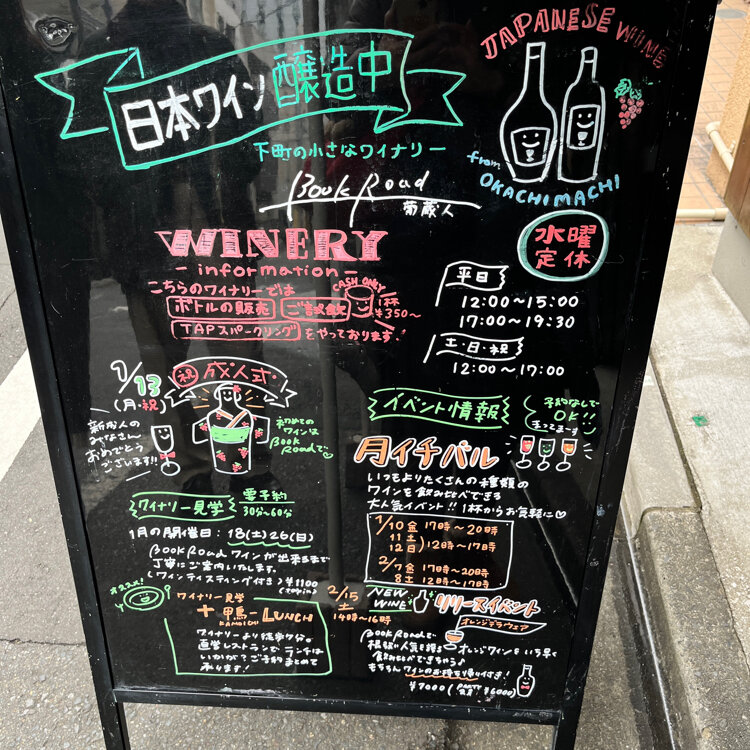 日本ワイン醸造中
下町の小さなワイナリー
JAPANESE WINE
from
OKACHIMACHI
Book Road
葡蔵人
水曜
定休
平日
12:00～15:00
17:00～19:30
土・日・祝
12:00～17:00
WINERY
-information-
こちらのワイナリーでは
ボトルの販売 ご試飲 CASH ONLY 1杯 ¥350～
TAPスパークリング をやっております!
1/13
(月・祝)
祝 成人式
新成人の
みなさん
おめでとう
ございます!!
初めての
ワインは
Book
Roadで
イベント情報
予約なしで
OK!!
まってまーす
月イチバル
いつもよりたくさんの種類の
ワインを飲み比べできる
大人気イベント!! 1杯からお気軽に♡
1/10 金 17時～20時
11 土
12 日 12時～17時
2/7 金 17時～20時
8 土 12時～17時
ワイナリー見学
要予約
30分～60分
1月の開催日:18(土)26(日)
Book Road ワインが出来るまで
丁寧にご案内いたします。
(ワインテイスティング付き) ¥1100
オススメ!
ワイナリー見学
+鴨-LUNCH
ワイナリーより徒歩7分の
直営レストランで ランチは
いかが? ご予約まとめて
承ります!
NEW
WINE
リリースイベント
2/15
土
14時～16時
オレンジデラウェア
Book Roadで
オレンジワインをいち早く
食飲み比べできちゃう♪
もちろんワインのお持ち帰り付き!
¥7000
¥6000)